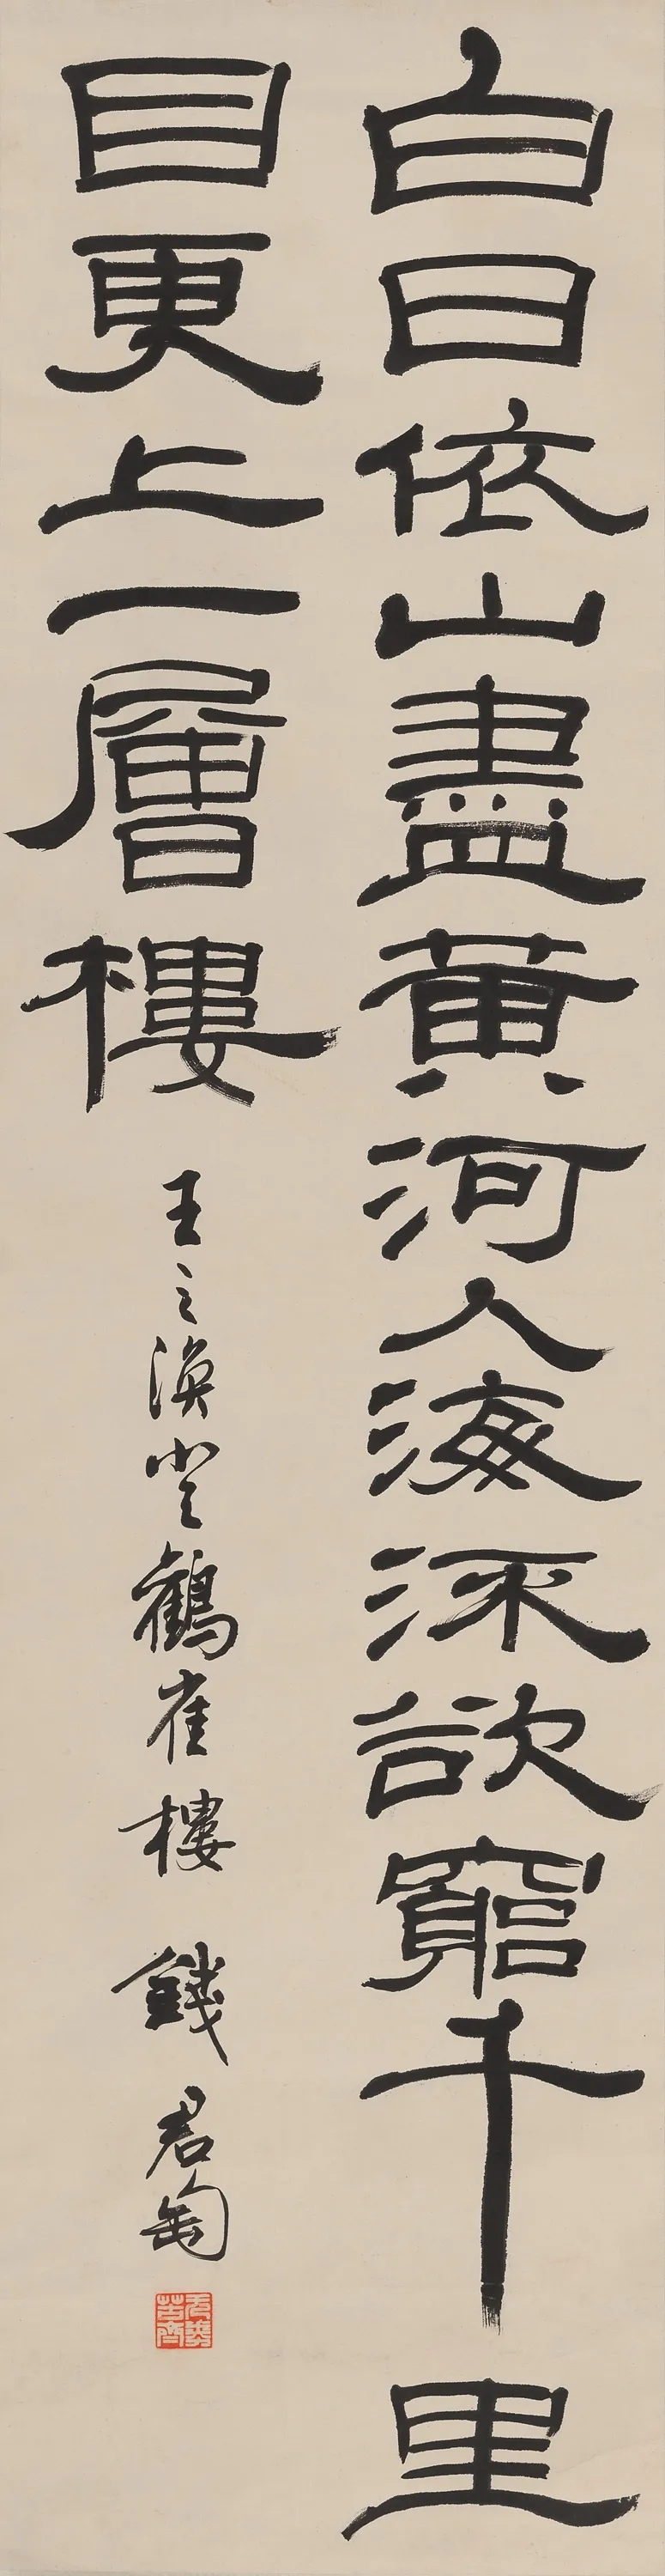 白日依山盡黃河入海流欲窮千里
目更上一層樓
王之渙登鸛雀樓 錢君匋
无倦苦齋